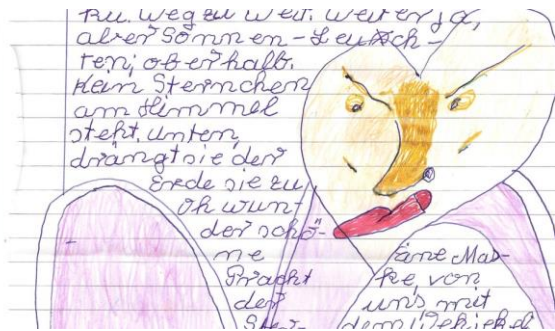 zu. weg zu weit. weiter ja,
aber Sonnen-Leuch-
ten; oberhalb.
Kein Sternchen
am Himmel
steht. unten,
drängt sie der
Erde sie zu
oh wun-
derschö-
ne
Pracht
der
Ster-
Eine Mas-
ke, von
uns mit
dem